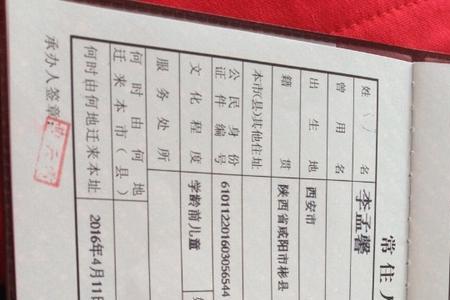 常住
姓名 李孟馨
曾用名
出生地 西安市
籍贯 陕西省咸阳市彬县
本市(县)其他住址
公民身份
证件编号 610112201603056544
文化程度 学龄前儿童
服务处所
何时由何地
迁来本市(县)
何时由何地迁来本址 2016年4月11
承办人签章: